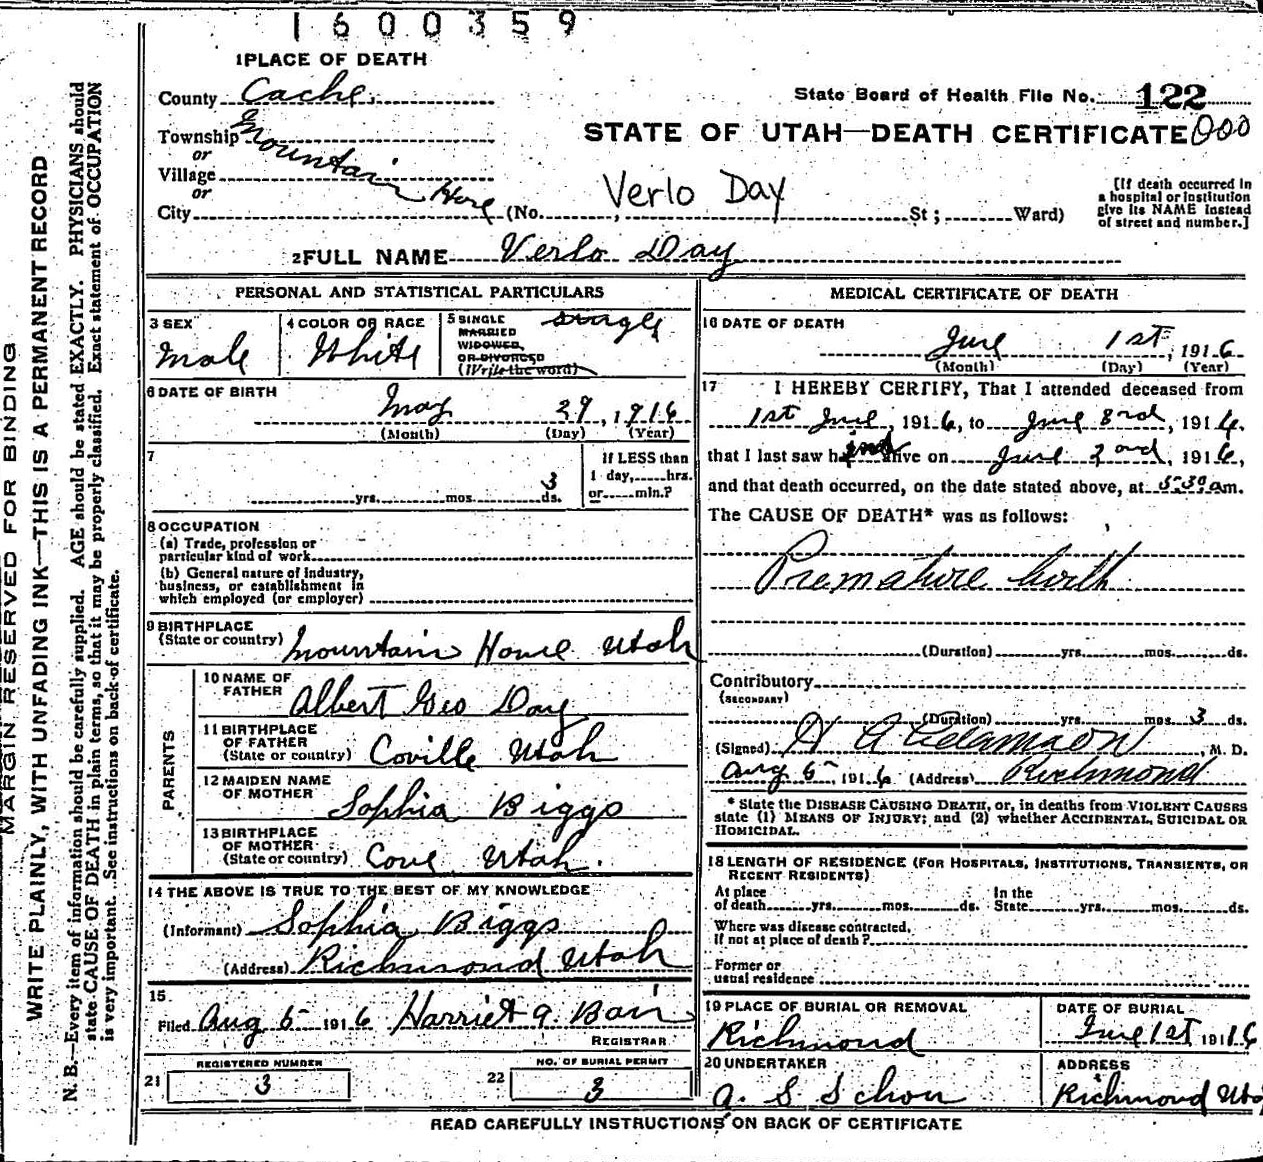 1600359
1 PLACE OF DEATH
County Cache.
State Board of Health File No. 122
Township Mountain Home
STATE OF UTAH—DEATH CERTIFICATE 000
or
Village
or
Verlo Day
City (No. , St; Ward)
[If death occurred in
a hospital or institution
give its NAME instead
of street and number.]
2 FULL NAME Verlo Day
PERSONAL AND STATISTICAL PARTICULARS
3 SEX Male
4 COLOR OR RACE White
5 SINGLE Single
MARRIED
WIDOWED,
OR DIVORCED
(Write the word)
6 DATE OF BIRTH
May 29, 1916
(Month) (Day) (Year)
7
yrs. mos. 3 ds.
If LESS than
1 day, hrs.
or min.?
8 OCCUPATION
(a) Trade, profession or
particular kind of work
(b) General nature of industry,
business, or establishment in
which employed (or employer)
9 BIRTHPLACE
(State or country) Mountain Home Utah
PARENTS
10 NAME OF
FATHER Albert Geo Day
11 BIRTHPLACE
OF FATHER
(State or country) Coville Utah
12 MAIDEN NAME
OF MOTHER Sophia Biggs
13 BIRTHPLACE
OF MOTHER
(State or country) Cove, Utah.
14 THE ABOVE IS TRUE TO THE BEST OF MY KNOWLEDGE
(Informant) Sophia Biggs
(Address) Richmond Utah
15
Filed Aug 5 1916 Harriet A. Bair
REGISTRAR
REGISTERED NUMBER
21 3
NO. OF BURIAL PERMIT
22 3
MEDICAL CERTIFICATE OF DEATH
16 DATE OF DEATH
June 1st, 1916
(Month) (Day) (Year)
17 I HEREBY CERTIFY, That I attended deceased from
1st June, 1916, to June 3rd, 1916,
that I last saw h alive on June 2ond, 1916,
and that death occurred, on the date stated above, at 5-30 am.
The CAUSE OF DEATH* was as follows:
Premature birth
(Duration) yrs. mos. ds.
Contributory
(SECONDARY)
(Duration) yrs. mos. 3 ds.
(Signed) H A Adamson, M. D.
Aug 5, 1916 (Address) Richmond
* State the DISEASE CAUSING DEATH, or, in deaths from VIOLENT CAUSES
state (1) MEANS OF INJURY; and (2) whether ACCIDENTAL, SUICIDAL OR
HOMICIDAL.
18 LENGTH OF RESIDENCE (FOR HOSPITALS, INSTITUTIONS, TRANSIENTS, OR
RECENT RESIDENTS)
At place
of death yrs. mos. ds.
In the
State yrs. mos. ds.
Where was disease contracted,
If not at place of death?
Former or
usual residence
19 PLACE OF BURIAL OR REMOVAL
Richmond
DATE OF BURIAL
June 1st 1916
20 UNDERTAKER
A. S. Schow
ADDRESS
Richmond Uta
READ CAREFULLY INSTRUCTIONS ON BACK OF CERTIFICATE
MARGIN RESERVED FOR BINDING
WRITE PLAINLY, WITH UNFADING INK—THIS IS A PERMANENT RECORD
N. B.—Every item of information should be carefully supplied. AGE should be stated EXACTLY. PHYSICIANS should
state CAUSE OF DEATH in plain terms, so that it may be properly classified. Exact statement of OCCUPATION
is very important. See instructions on back of certificate.